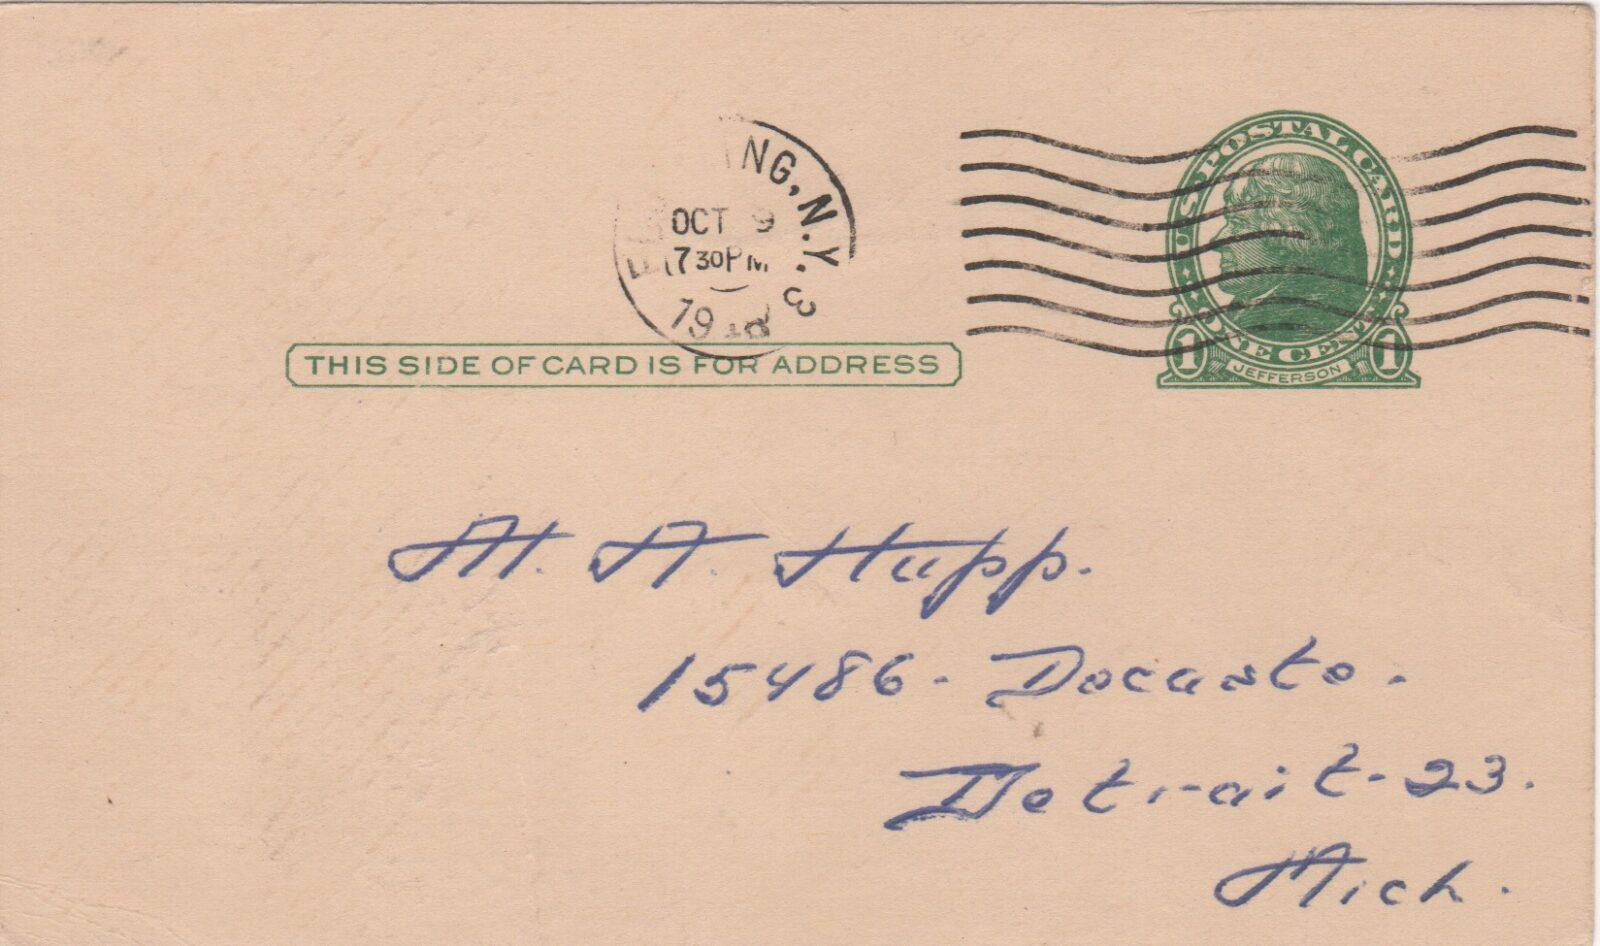 NG, N.Y. 3
OCT 9
730PM
1948
U.S. POSTAL CARD
1 ONE CENT 1
JEFFERSON
THIS SIDE OF CARD IS FOR ADDRESS
H. A. Hupp.
15486 - Decasto.
Detroit - 23.
Mich.